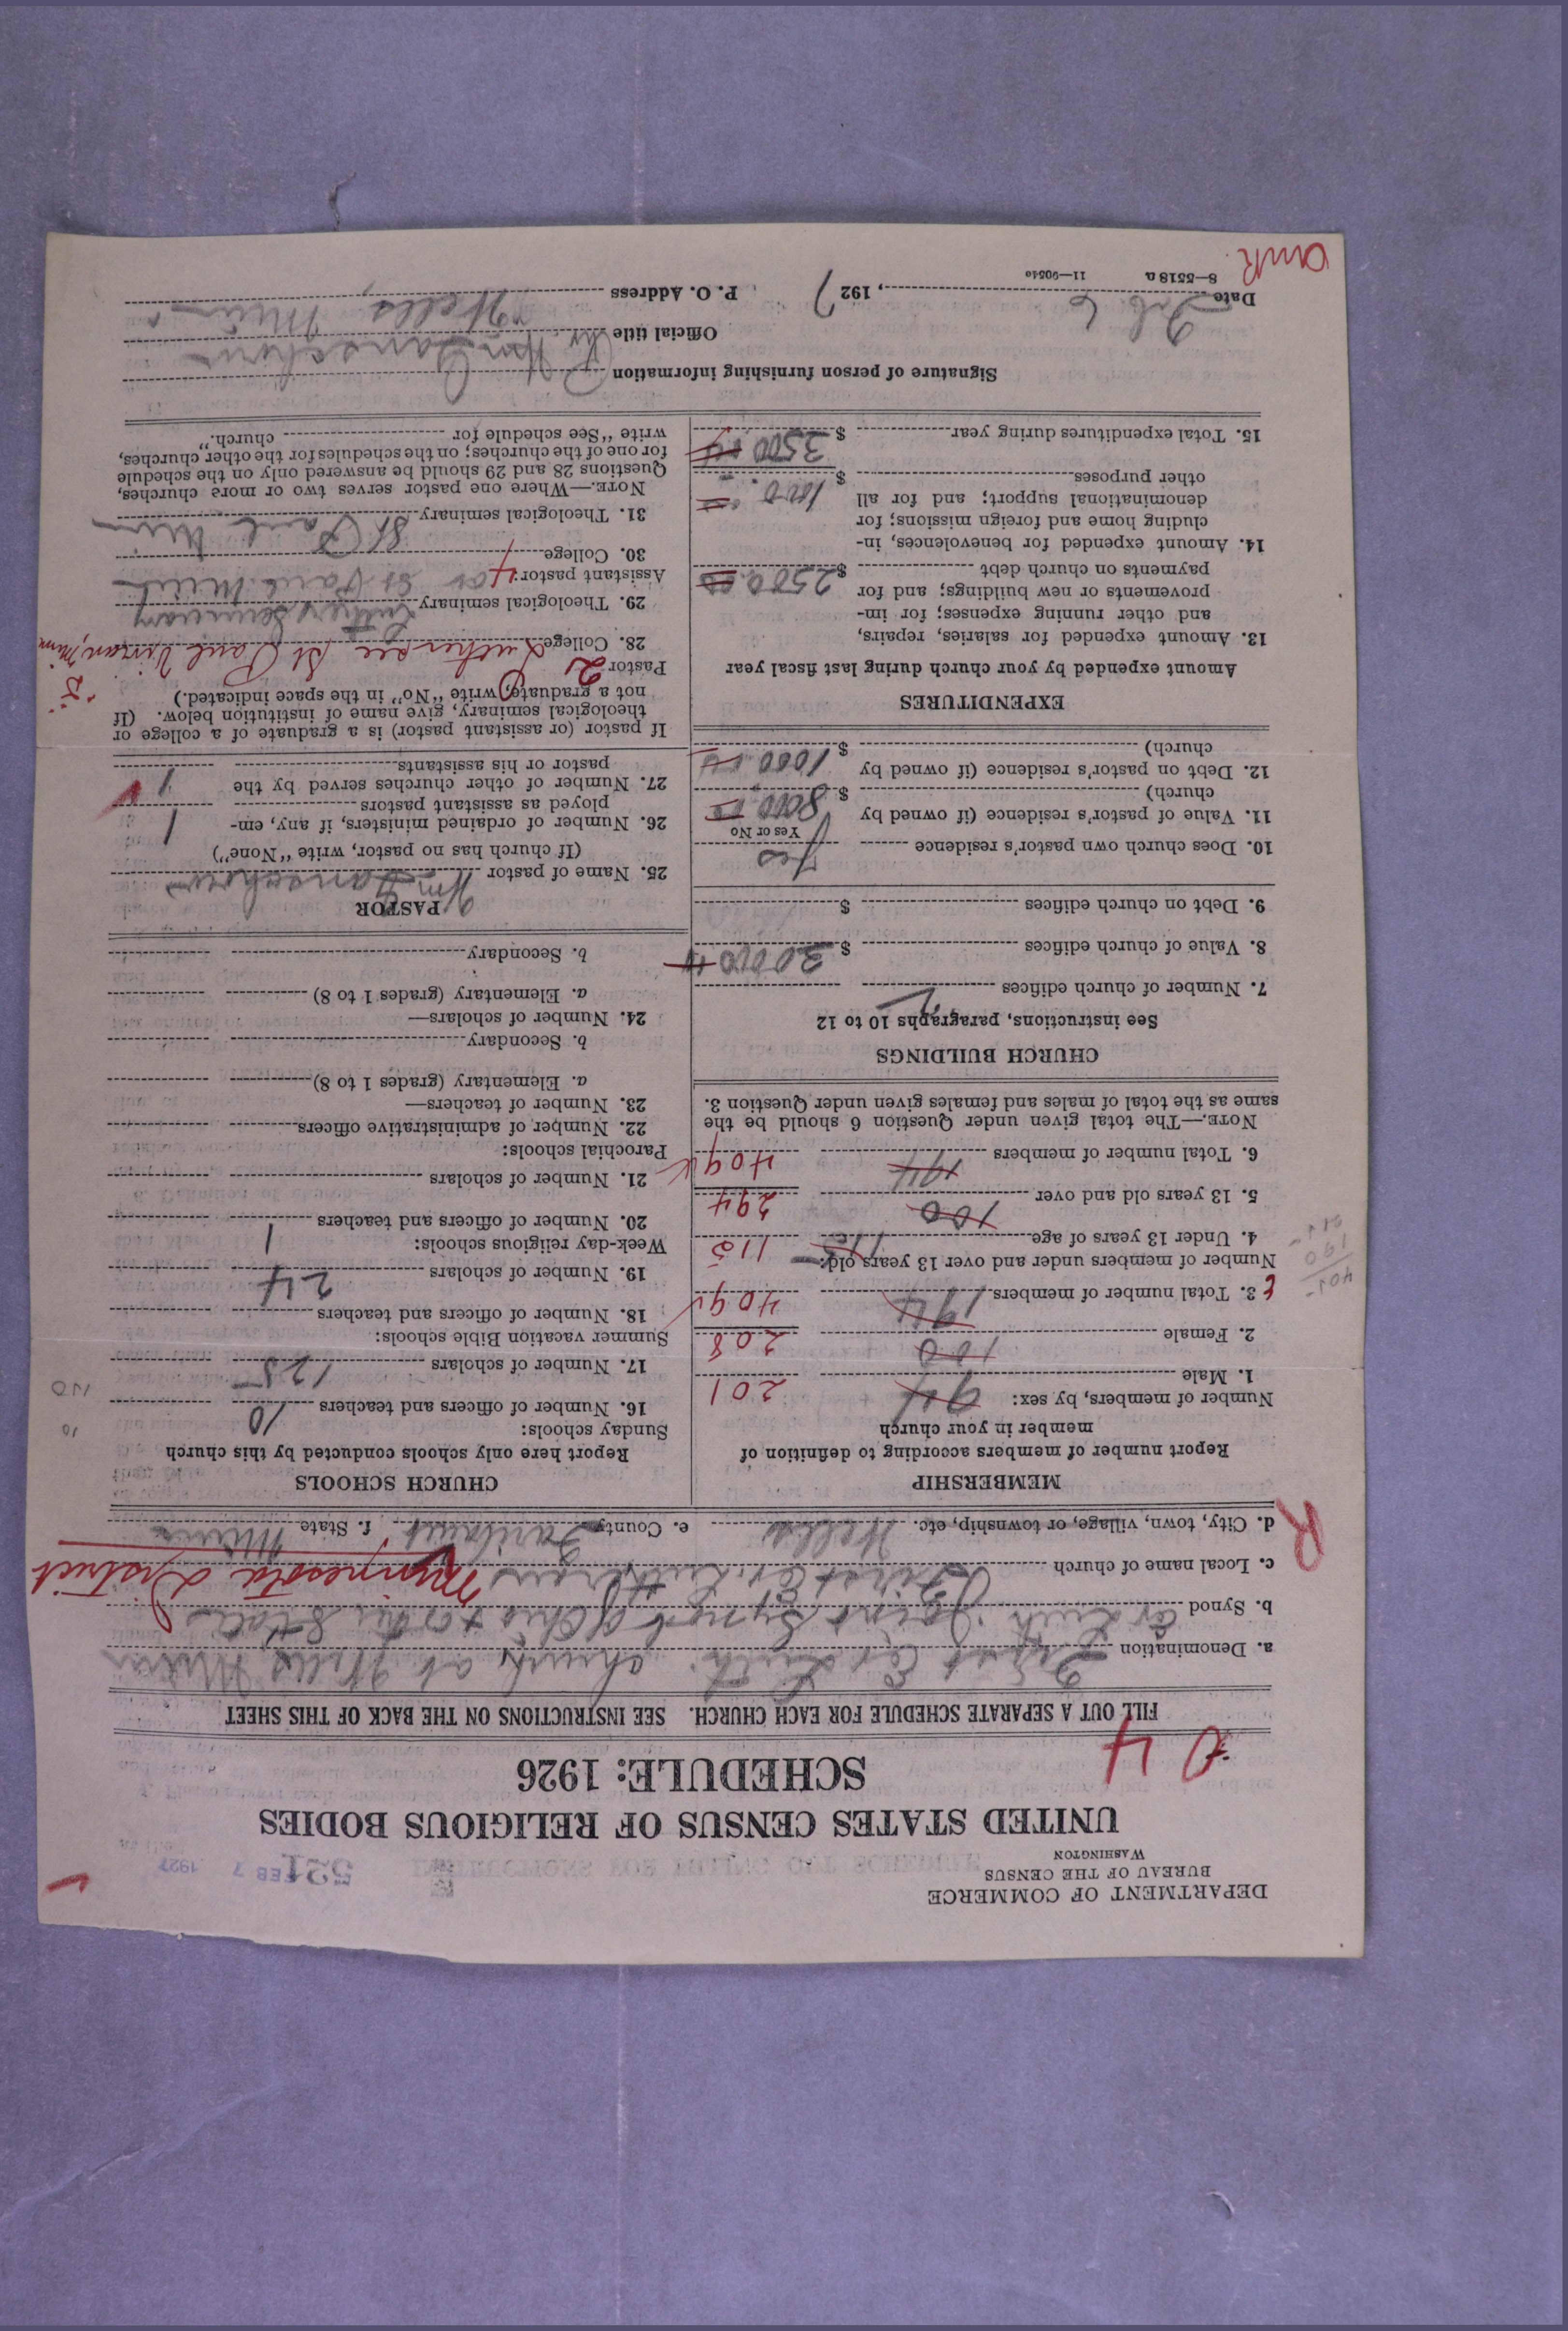 DEPARTMENT OF COMMERCE
BUREAU OF THE CENSUS
WASHINGTON
531
FEB 7 1927
UNITED STATES CENSUS OF RELIGIOUS BODIES
SCHEDULE: 1926
04
FILL OUT A SEPARATE SCHEDULE FOR EACH CHURCH. SEE INSTRUCTIONS ON THE BACK OF THIS SHEET
a. Denomination First Ev. Luth. church at Wells Minn
b. Synod Ev Luth. Joint Synod of Ohio & other States
c. Local name of church First Ev. Lutheran Minnesota District
d. City, town, village, or township, etc. Wells e. County Faribault f. State Minn
R
MEMBERSHIP
Report number of members according to definition of
member in your church
Number of members, by sex:
1. Male 94 201
2. Female 100 208
3. Total number of members 194 409
Number of members under and over 13 years old:
4. Under 13 years of age 115 115
5. 13 years old and over 100 294
6. Total number of members 194 409
NOTE.—The total given under Question 6 should be the
same as the total of males and females given under Question 3.
CHURCH BUILDINGS
See instructions, paragraphs 10 to 12
7. Number of church edifices
8. Value of church edifices $ 30000
9. Debt on church edifices $
10. Does church own pastor's residence Yes
Yes or No
11. Value of pastor's residence (if owned by
church) $ 8000.00
12. Debt on pastor's residence (if owned by
church) $ 1000.00
EXPENDITURES
Amount expended by your church during last fiscal year
13. Amount expended for salaries, repairs,
and other running expenses; for im-
provements or new buildings; and for
payments on church debt $ 2500.00
14. Amount expended for benevolences, in-
cluding home and foreign missions; for
denominational support; and for all
other purposes $ 1000
15. Total expenditures during year $ 3500.00
CHURCH SCHOOLS
Report here only schools conducted by this church
Sunday schools:
16. Number of officers and teachers 10
17. Number of scholars 125
Summer vacation Bible schools:
18. Number of officers and teachers
19. Number of scholars 24
Week-day religious schools:
20. Number of officers and teachers 1
21. Number of scholars
Parochial schools:
22. Number of administrative officers
23. Number of teachers—
a. Elementary (grades 1 to 8)
b. Secondary
24. Number of scholars—
a. Elementary (grades 1 to 8)
b. Secondary
PASTOR
25. Name of pastor Wm
(If church has no pastor, write "None")
26. Number of ordained ministers, if any, em-
ployed as assistant pastors 1
27. Number of other churches served by the
pastor or his assistants 1
If pastor (or assistant pastor) is a graduate of a college or
theological seminary, give name of institution below. (If
not a graduate, write "No" in the space indicated.)
Pastor: 2
28. College Luther St Paul
29. Theological seminary Luther Seminary
Assistant pastor: St Paul Minn
30. College
31. Theological seminary St Paul Minn
NOTE.—Where one pastor serves two or more churches,
Questions 28 and 29 should be answered only on the schedule
for one of the churches; on the schedules for the other churches,
write "See schedule for church."
Signature of person furnishing information Wm
Official title
Date Feb. 6, 1927 P. O. Address Wells, Minn
8—5518a 11—9054a